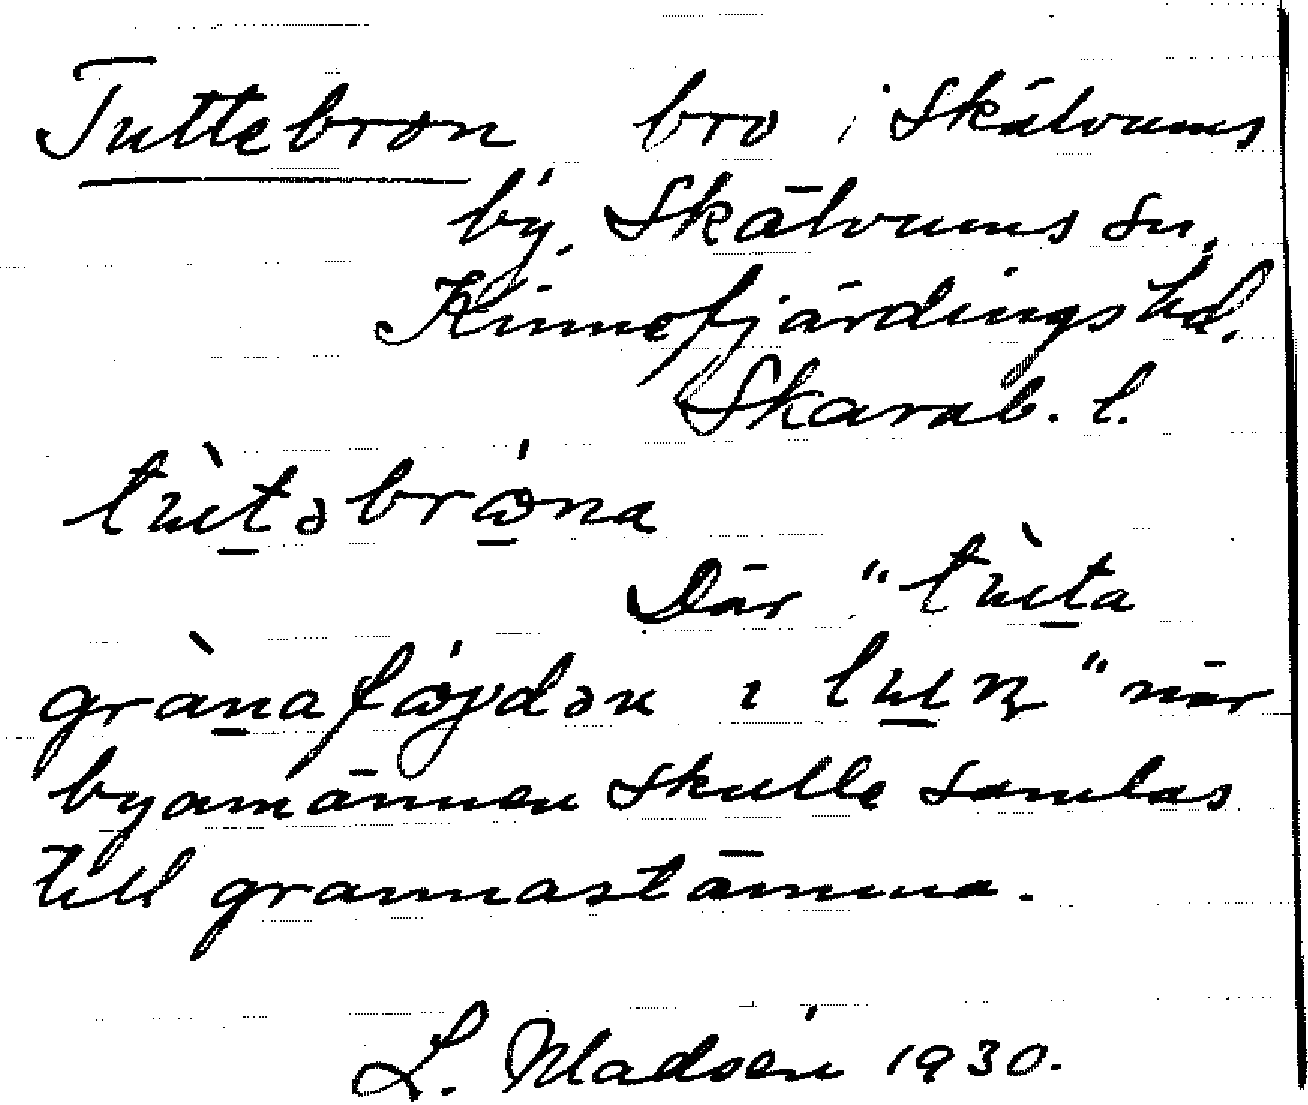 Tuttebron bro i Skälvums
by, Skälvums sn,
Kinnefjärdings hd.
Skarab. l.
tùtəbrǿna
Där "tùta
gràna fǿydən ı lurn" när
byamännen skulle samlas
till grannastämma.
L. Madsén 1930.